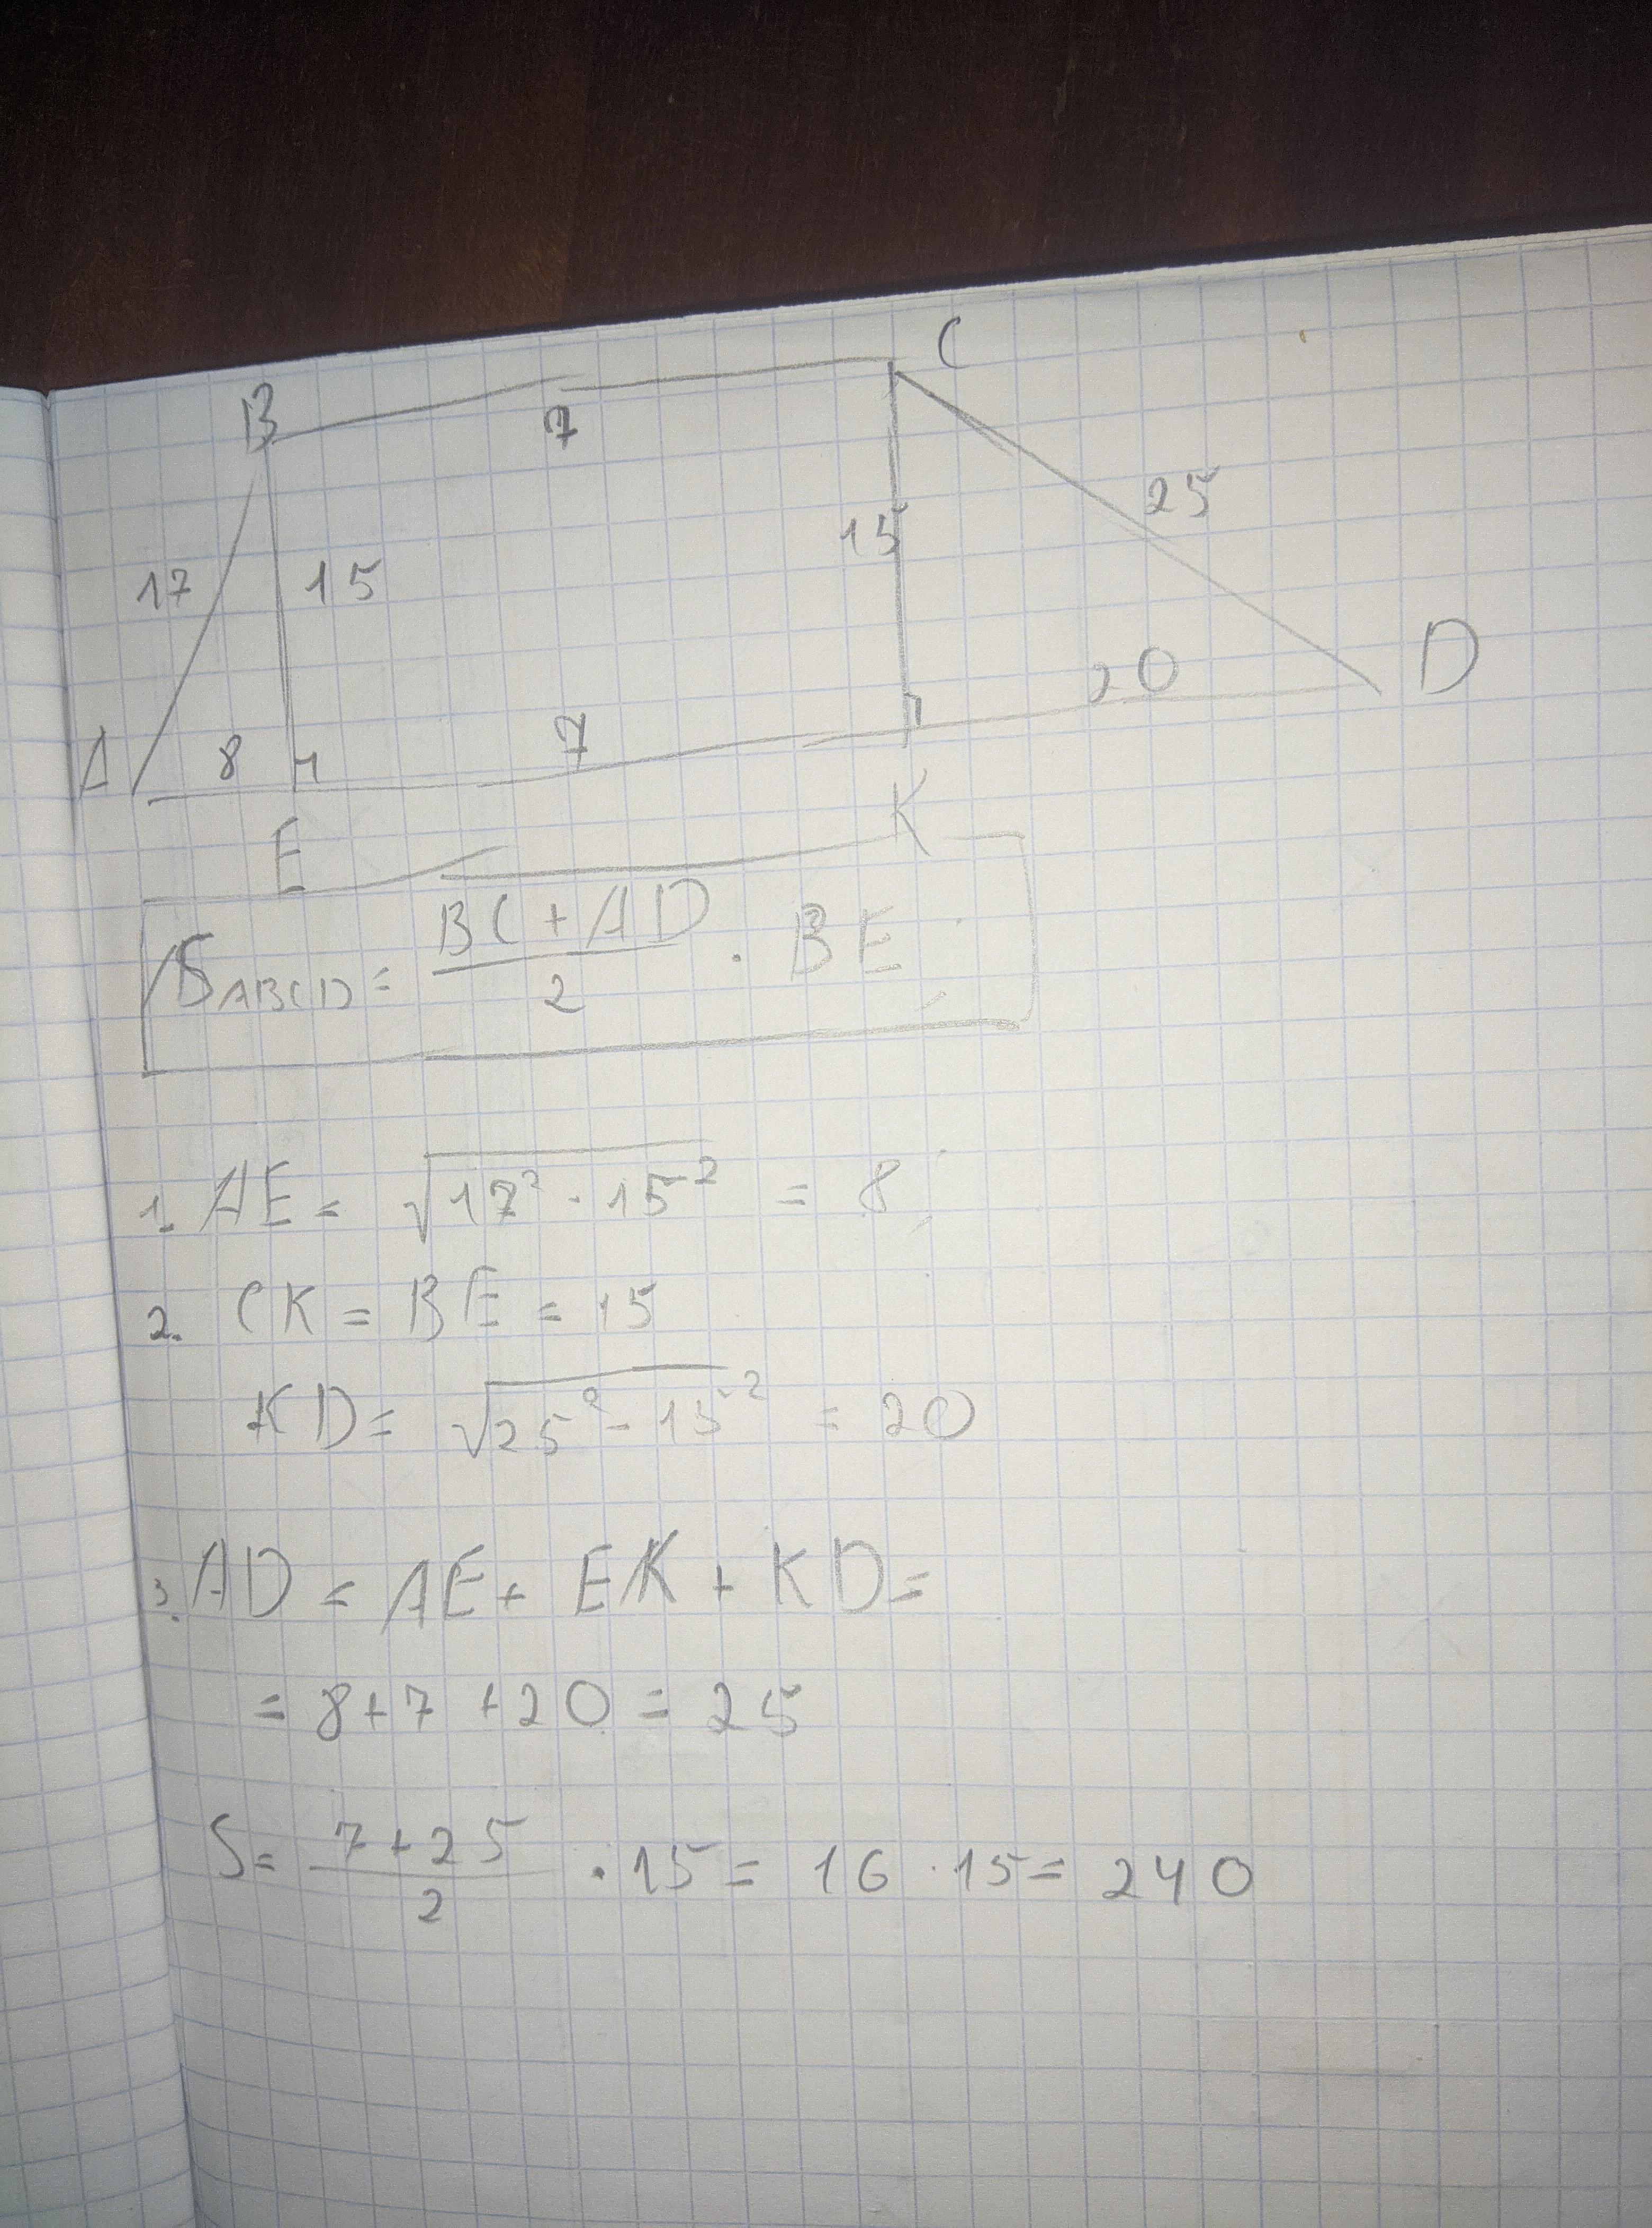 B 7 C
17 15 15 25
A 8 7 20 D
E K
S_ABCD = (BC + AD)/2 · BE
1. AE = √(17² - 15²) = 8
2. CK = BE = 15
KD = √(25² - 15²) = 20
3. AD = AE + EK + KD =
= 8 + 7 + 20 = 25
S = (7 + 25)/2 · 15 = 16 · 15 = 240